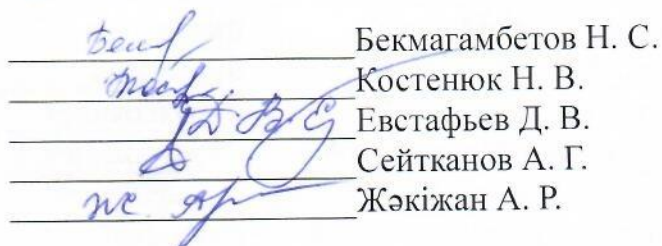 Бекмагамбетов Н. С.
Костенюк Н. В.
Евстафьев Д. В.
Сейтканов А. Г.
Жәкіжан А. Р.